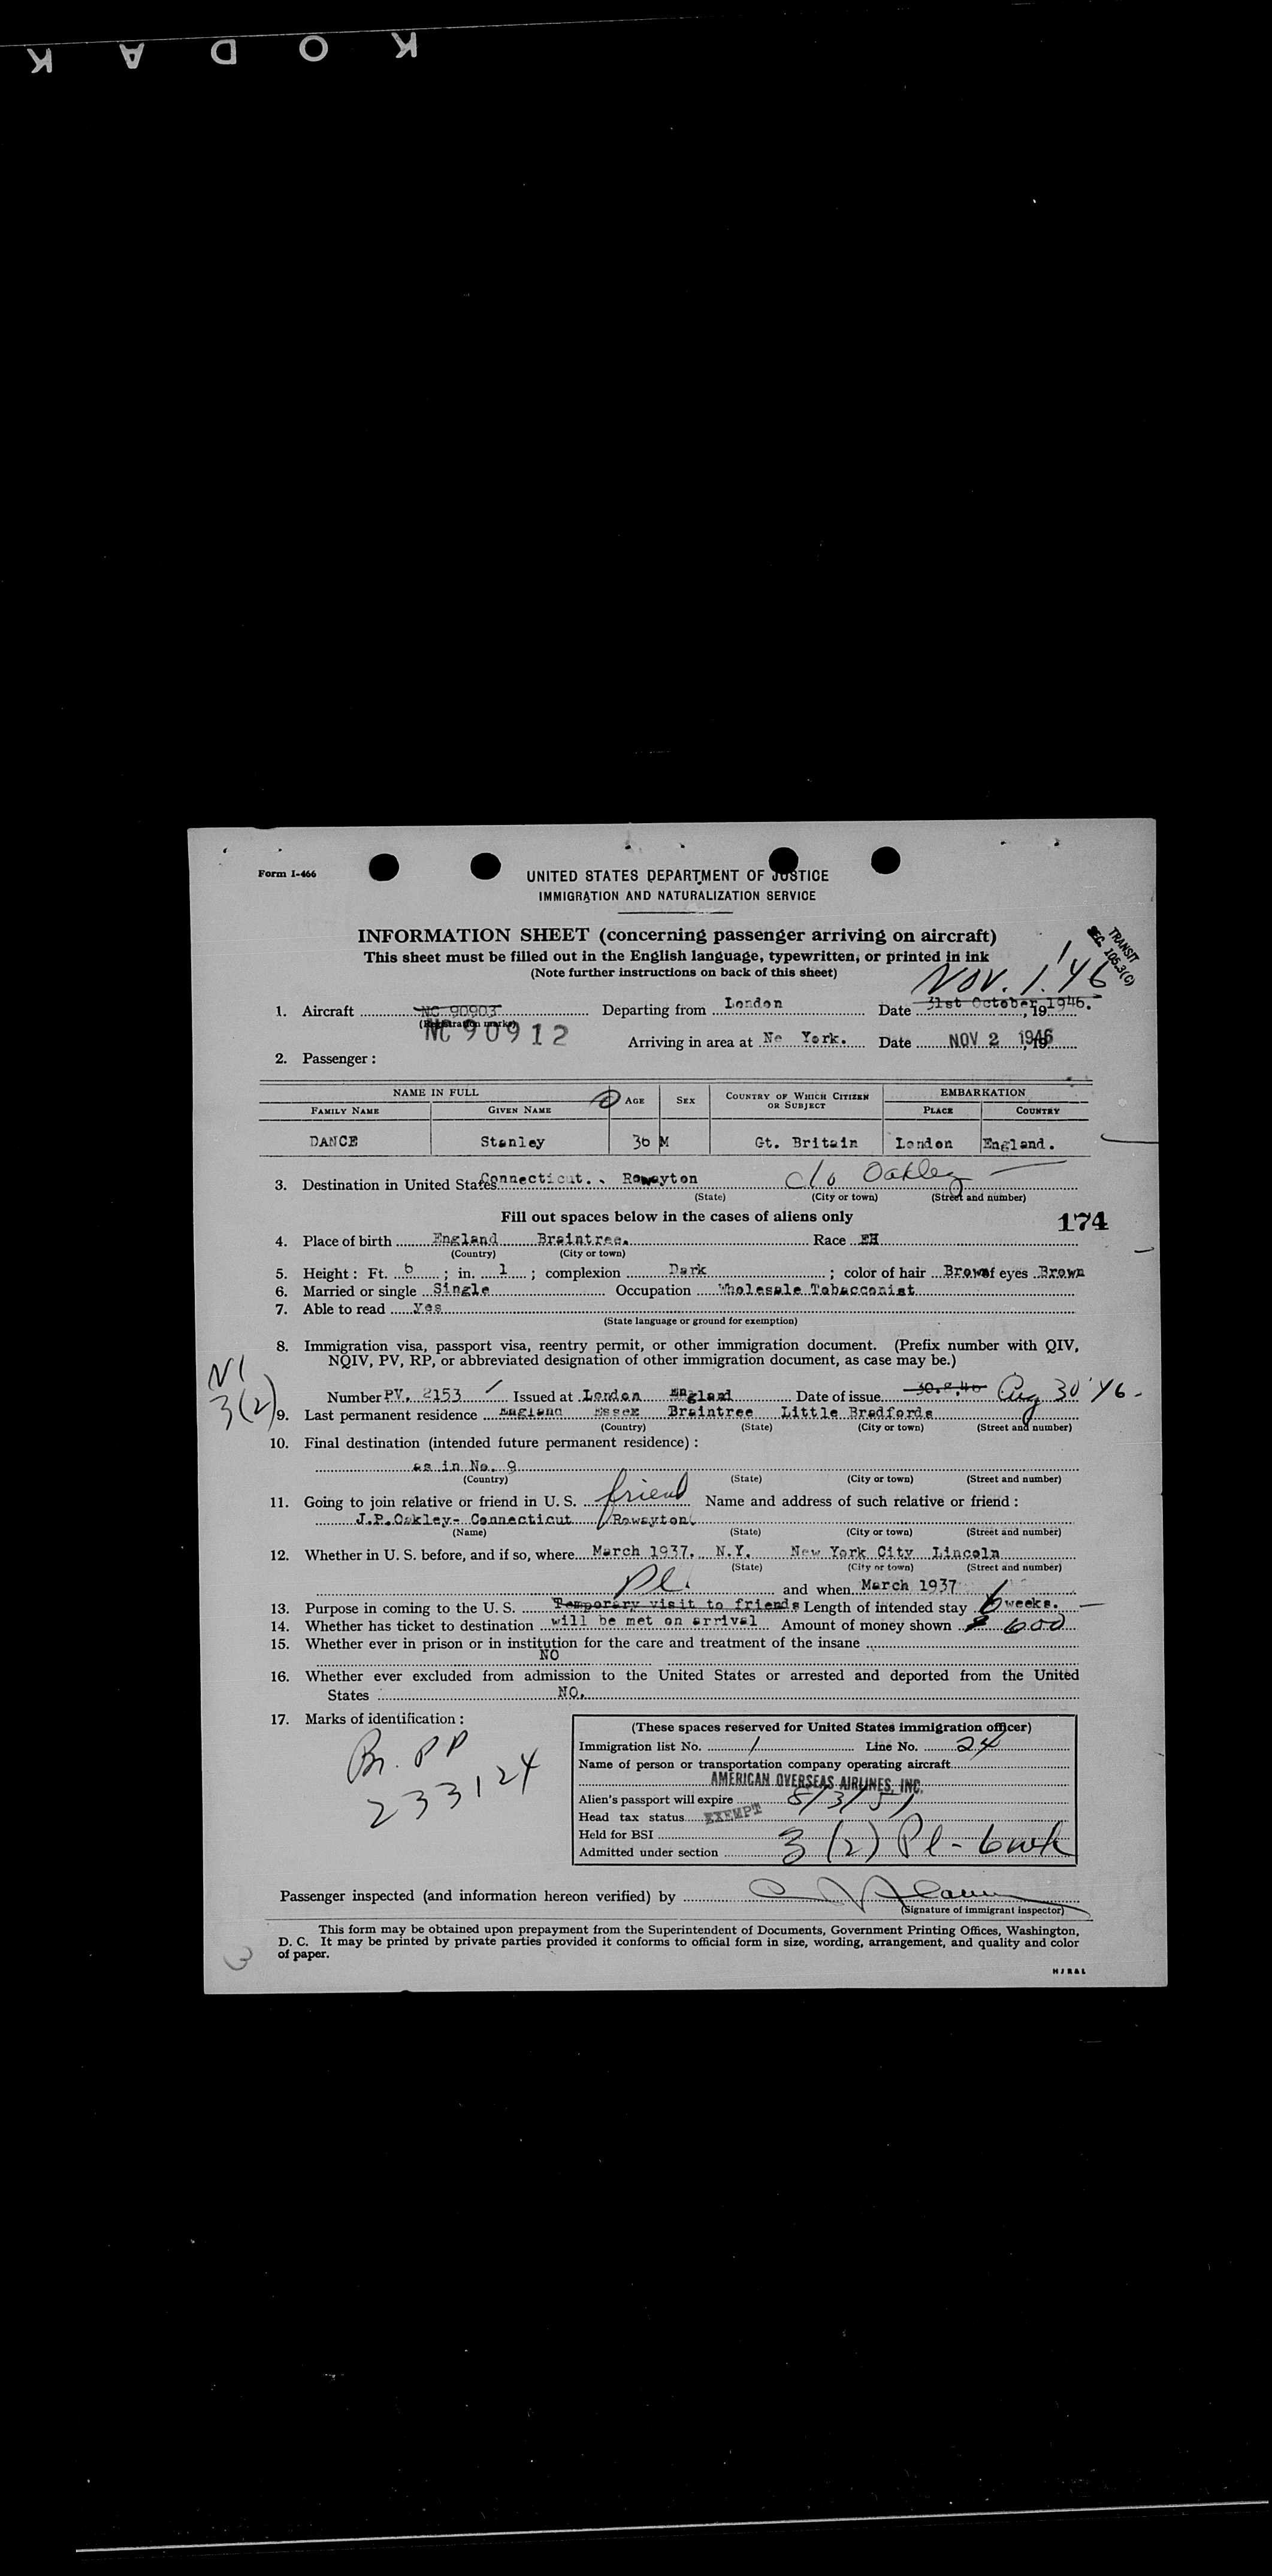 KODAK
Form I-466
UNITED STATES DEPARTMENT OF JUSTICE
IMMIGRATION AND NATURALIZATION SERVICE
INFORMATION SHEET (concerning passenger arriving on aircraft)
This sheet must be filled out in the English language, typewritten, or printed in ink
(Note further instructions on back of this sheet)
TRANSIT
SEC. 105.3(C)
Nov. 1. '46
1. Aircraft NC 90903 Departing from London Date 31st October, 1946.
(Registration marks)
NC 90912 Arriving in area at Ne York. Date NOV 2 1946
2. Passenger:
NAME IN FULL AGE SEX COUNTRY OF WHICH CITIZEN OR SUBJECT EMBARKATION
FAMILY NAME GIVEN NAME PLACE COUNTRY
DANCE Stanley 36 M Gt. Britain London England.
3. Destination in United States Connecticut. Rowayton c/o Oakley
(State) (City or town) (Street and number)
Fill out spaces below in the cases of aliens only 174
4. Place of birth England Braintree. Race EH
(Country) (City or town)
5. Height: Ft. 6; in. 1; complexion Dark; color of hair Brown of eyes Brown
6. Married or single Single Occupation Wholesale Tobacconist
7. Able to read Yes
(State language or ground for exemption)
8. Immigration visa, passport visa, reentry permit, or other immigration document. (Prefix number with QIV,
NQIV, PV, RP, or abbreviated designation of other immigration document, as case may be.)
3(2)
Number PV. 2153 Issued at London England Date of issue 30.8.46 Aug 30 '46 -
9. Last permanent residence England Essex Braintree Little Bradfords
(Country) (State) (City or town) (Street and number)
10. Final destination (intended future permanent residence):
as in No. 9
(Country) (State) (City or town) (Street and number)
11. Going to join relative or friend in U. S. friend Name and address of such relative or friend:
J.P.Oakley- Connecticut Rowayton
(Name) (State) (City or town) (Street and number)
12. Whether in U. S. before, and if so, where March 1937. N.Y. New York City Lincoln
(State) (City or town) (Street and number)
Pl. and when March 1937
13. Purpose in coming to the U. S. Temporary visit to friends Length of intended stay 6 weeks.
14. Whether has ticket to destination will be met on arrival Amount of money shown $ 600
15. Whether ever in prison or in institution for the care and treatment of the insane
NO
16. Whether ever excluded from admission to the United States or arrested and deported from the United
States NO.
17. Marks of identification:
Br. PP
233124
(These spaces reserved for United States immigration officer)
Immigration list No. 1 Line No. 24
Name of person or transportation company operating aircraft
AMERICAN OVERSEAS AIRLINES, INC.
Alien's passport will expire 8/3/51
Head tax status EXEMPT
Held for BSI
Admitted under section 3 (2) Pl - 6 wk
Passenger inspected (and information hereon verified) by
(Signature of immigrant inspector)
This form may be obtained upon prepayment from the Superintendent of Documents, Government Printing Offices, Washington,
D. C. It may be printed by private parties provided it conforms to official form in size, wording, arrangement, and quality and color
of paper.
3